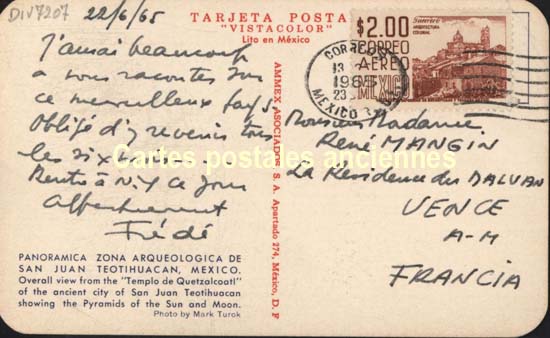 DIV7207
22/6/65
TARJETA POSTAL
"VISTACOLOR"
Lito en México
J'aurai beaucoup
a vous raconter sur
ce merveilleux pays
Obligé d'y revenir tous
les six
Rentre à N.Y ce jour
Affectueusement
Frédé
PANORAMICA ZONA ARQUEOLOGICA DE
SAN JUAN TEOTIHUACAN, MEXICO.
Overall view from the "Templo de Quetzalcoatl"
of the ancient city of San Juan Teotihuacan
showing the Pyramids of the Sun and Moon.
Photo by Mark Turok
AMMEX ASOCIADOS, S. A. Apartado 274, México, D. F
$2.00
CORREO
AEREO
MEXICO
ARQUITECTURA
COLONIAL
1965
MEXICO
Monsieur Madame
René MANGIN
La Résidence du
VENCE
A-M
FRANCIA
Cartes postales anciennes